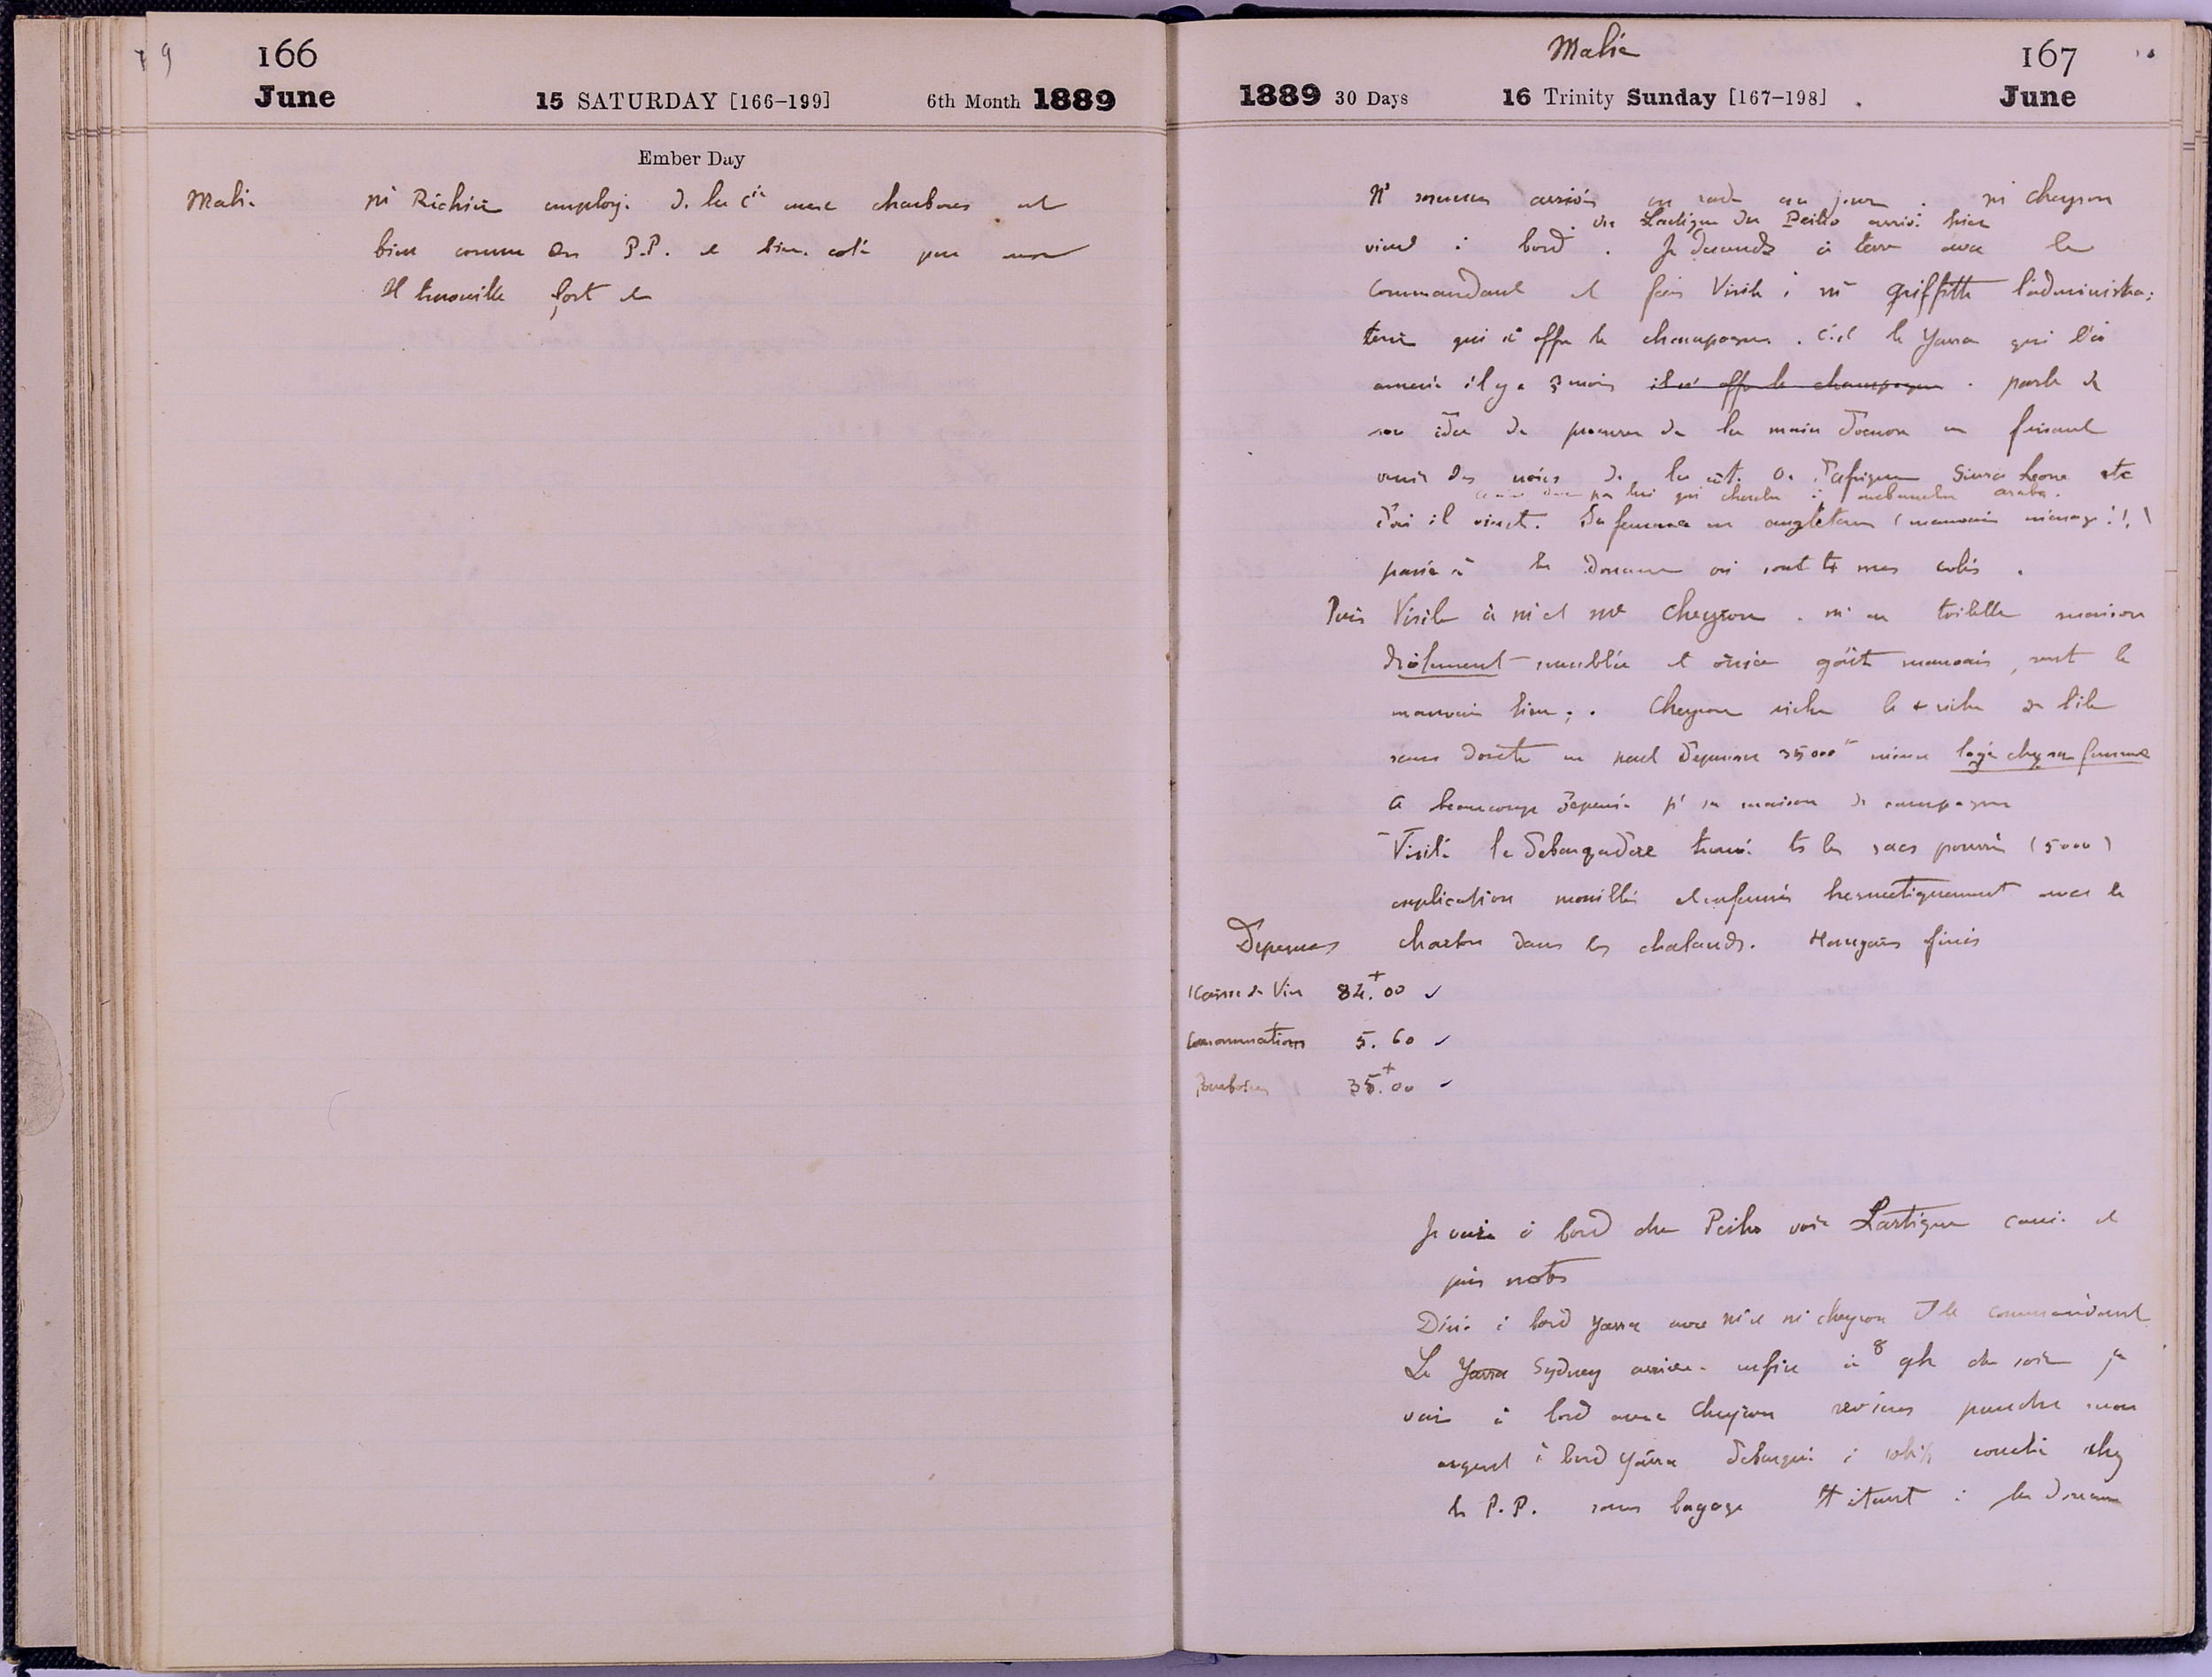 166
June
15 SATURDAY [166-199]
6th Month 1889
Ember Day
Mahé
Mr Richier employé de la Cie aux charbons est
bien comme en P.P. et bien coté par
Il travaille fort et
Mahé
167
June
1889 30 Days
16 Trinity Sunday [167-198]
Ns sommes arrivés en rade au jour. Mr Cheyron
vu Lartigue du Peiho arrivé hier
vient à bord. Je descends à terre avec le
Commandant et fais visite à Mr Griffith l'administra:
teur qui ns offre le champagne. C'est le Yarra qui l'a
amené il y a 3 mois il ns offre le champagne. parle de
son idée de procurer de la main d'œuvre en faisant
venir des noirs de la côt. O. d'Afrique Sierra Leone etc
par lui qui cherche à arabe.
d'où il vient. Sa femme en angleterre (mauvais ménage!!)
passé à la Douane où sont ts mes colis.
Puis Visite à Mr et Mme Cheyron. Mr en toilette maison
drôlement meublée et ornée goût mauvais, sent le
mauvais lieu. Cheyron riche le + riche de l'île
sans doute en peut dépenser 35000 logé chez sa femme
a beaucoup dépensé pr sa maison de campagne
Visité le débarquadère trouvé ts les sacs pourris (5000)
explication mouillés et enfermés hermétiquement avec le
charbon dans les chalands. Hangars finis
Dépenses
1 Caisse de Vin 84.00
Consommations 5.60
Pourboires 35.00
Je vais à bord du Peiho voir Lartigue causé et
pris notes
Diné à bord Yarra avec Mr et Me Cheyron et le commandant
Le Yarra Sydney arrive enfin à 8 qh du soir je
vais à bord avec Cheyron reviens prendre mon
argent à bord Yarra débarqué couché chez
le P.P. sans bagage tt étant à la douane